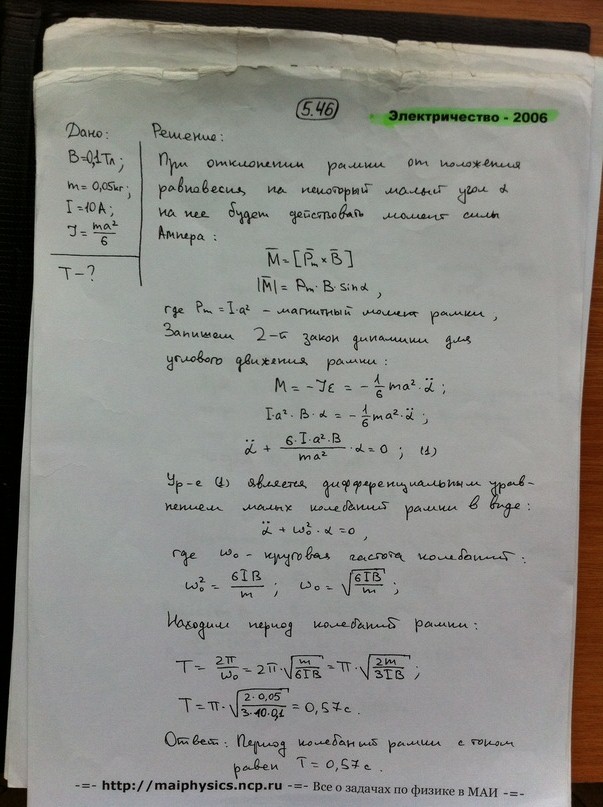 5.46
Электричество - 2006
Дано:
B=0,1Тл;
m=0,05кг;
I=10А;
J=ma²/6
T-?
Решение:
При отклонении рамки от положения
равновесия на некоторый малый угол α
на нее будет действовать момент силы
Ампера:
M̄=[P̄m×B̄]
|M̄|=Pm·B·sinα,
где Pm=I·a² - магнитный момент рамки,
Запишем 2-й закон динамики для
углового движения рамки:
M=-Jε=-1/6 ma²·α̈;
I·a²·B·α=-1/6 ma²·α̈;
α̈+(6·I·a²·B)/(ma²)·α=0; (1)
Ур-е (1) является дифференциальным урав-
нением малых колебаний рамки в виде:
α̈+ω₀²·α=0,
где ω₀ - круговая частота колебаний:
ω₀²=6IB/m; ω₀=√(6IB/m);
Находим период колебаний рамки:
T=2π/ω₀=2π·√(m/6IB)=π·√(2m/3IB);
T=π·√(2·0,05/3·10·0,1)=0,57с.
Ответ: Период колебаний рамки с током
равен T=0,57с.
-=- http://maiphysics.ncp.ru - Все о задачах по физике в МАИ -=-